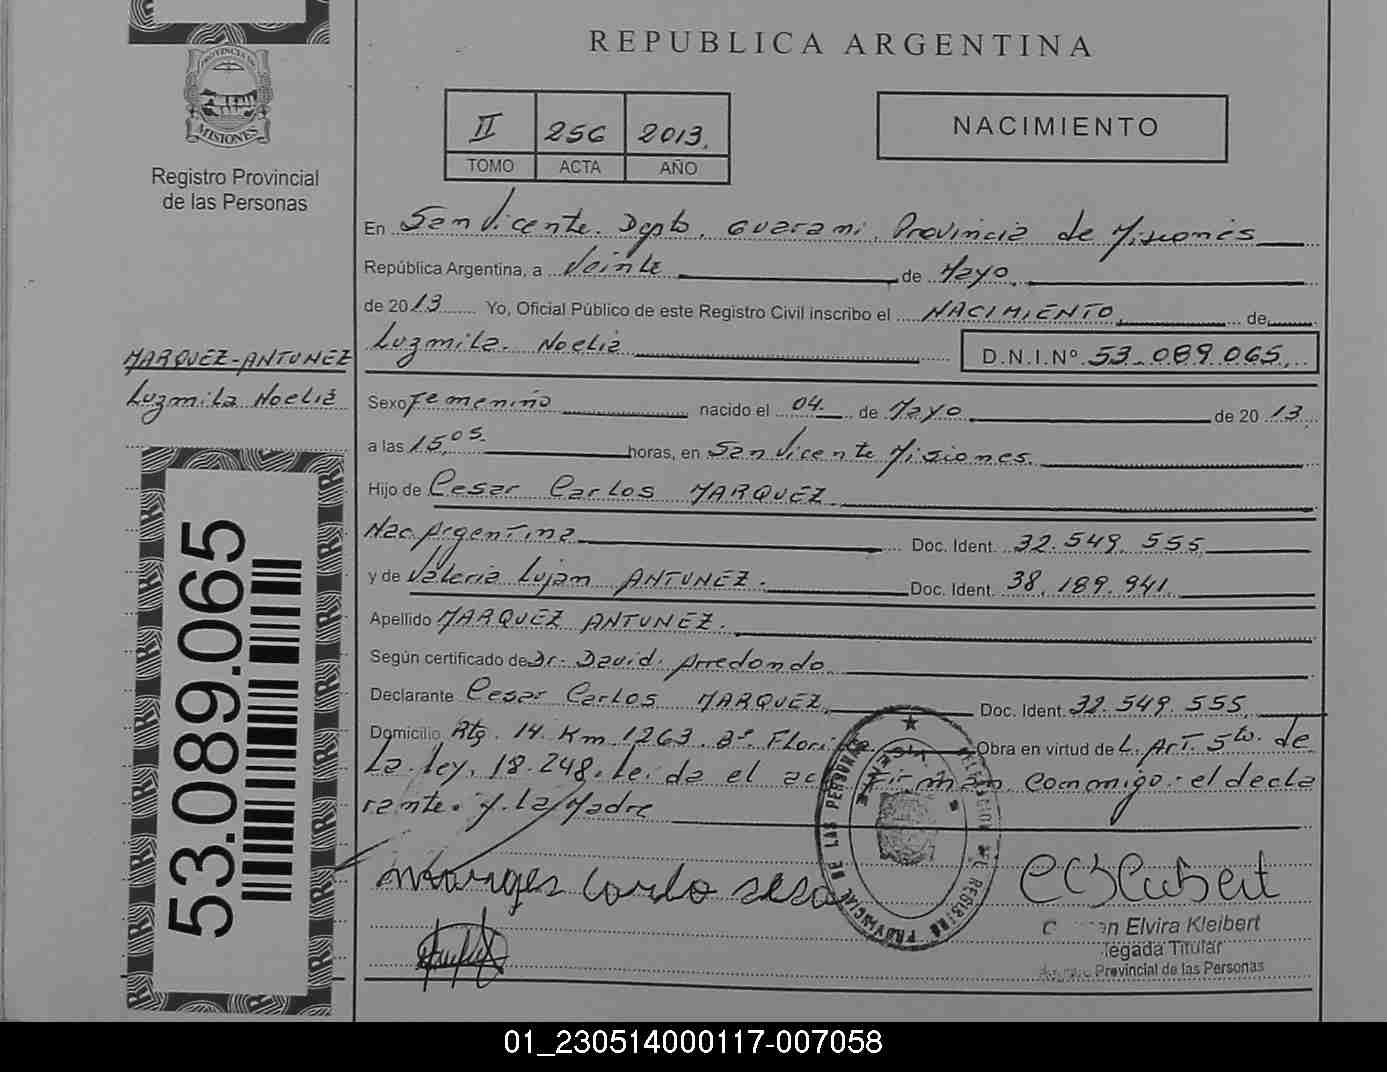 REPUBLICA ARGENTINA
PROVINCIA DE
MISIONES
Registro Provincial
de las Personas
II 256 2013.
TOMO ACTA AÑO
NACIMIENTO
En San Vicente. Dpto. Guarami. Provincia de Misiones
República Argentina, a Veinte de Mayo
de 2013 Yo, Oficial Público de este Registro Civil inscribo el NACIMIENTO, de
Luzmila. Noelia D.N.I.Nº 53-089.065
MARQUEZ-ANTUNEZ
Luzmila Noelia
Sexo Femenino nacido el 04 de Mayo de 2013
a las 15,05 horas, en San Vicente Misiones.
Hijo de Cesar Carlos MARQUEZ
Nac. Argentina Doc. Ident. 32.549.555
y de Valeria Lujan ANTUNEZ. Doc. Ident. 38.189.941
Apellido MARQUEZ ANTUNEZ.
Según certificado de Dr. David. Arredondo
Declarante Cesar Carlos MARQUEZ, Doc. Ident. 32.549.555
Domicilio Rta. 14 Km 1263. Bº. Obra en virtud de L. Art. 5to. de
La ley. 18.248. Leida el conmigo: el decla
rante. y. la Madre
53.089.065
Elvira Kleibert
Titular
Provincial de las Personas
01_230514000117-007058